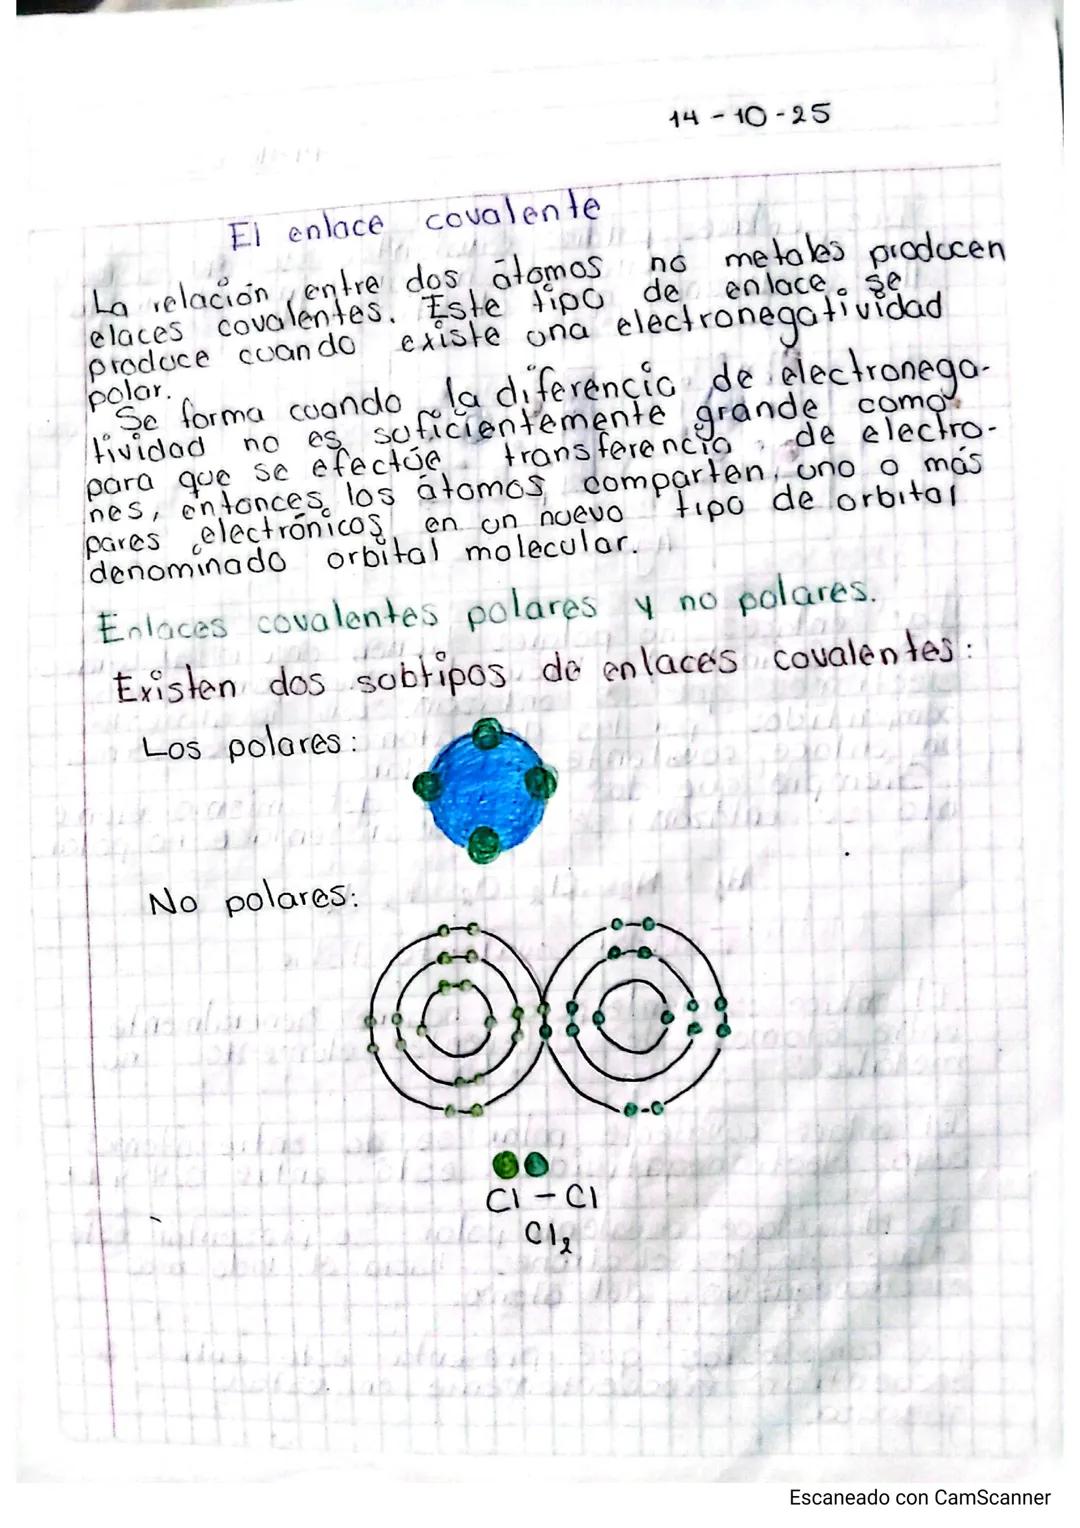 14-10-25
El enlace covalente
La relación entre dos átomos no metales producen
elaces covalentes. Este tipo de enlace se
produce cuando existe una electronegatividad
polar.
Se forma cuando la diferencia de electronega-
tividad no es suficientemente grande como
para que se efectúe transferencia de electro-
nes, entonces los átomos comparten uno o más
pares electrónicos en un nuevo tipo de orbital
denominado orbital molecular.
Enlaces covalentes polares y no polares.
Existen dos subtipos de enlaces covalentes:
Los polares:
No polares:
Cl - Cl
Cl₂
Escaneado con CamScanner